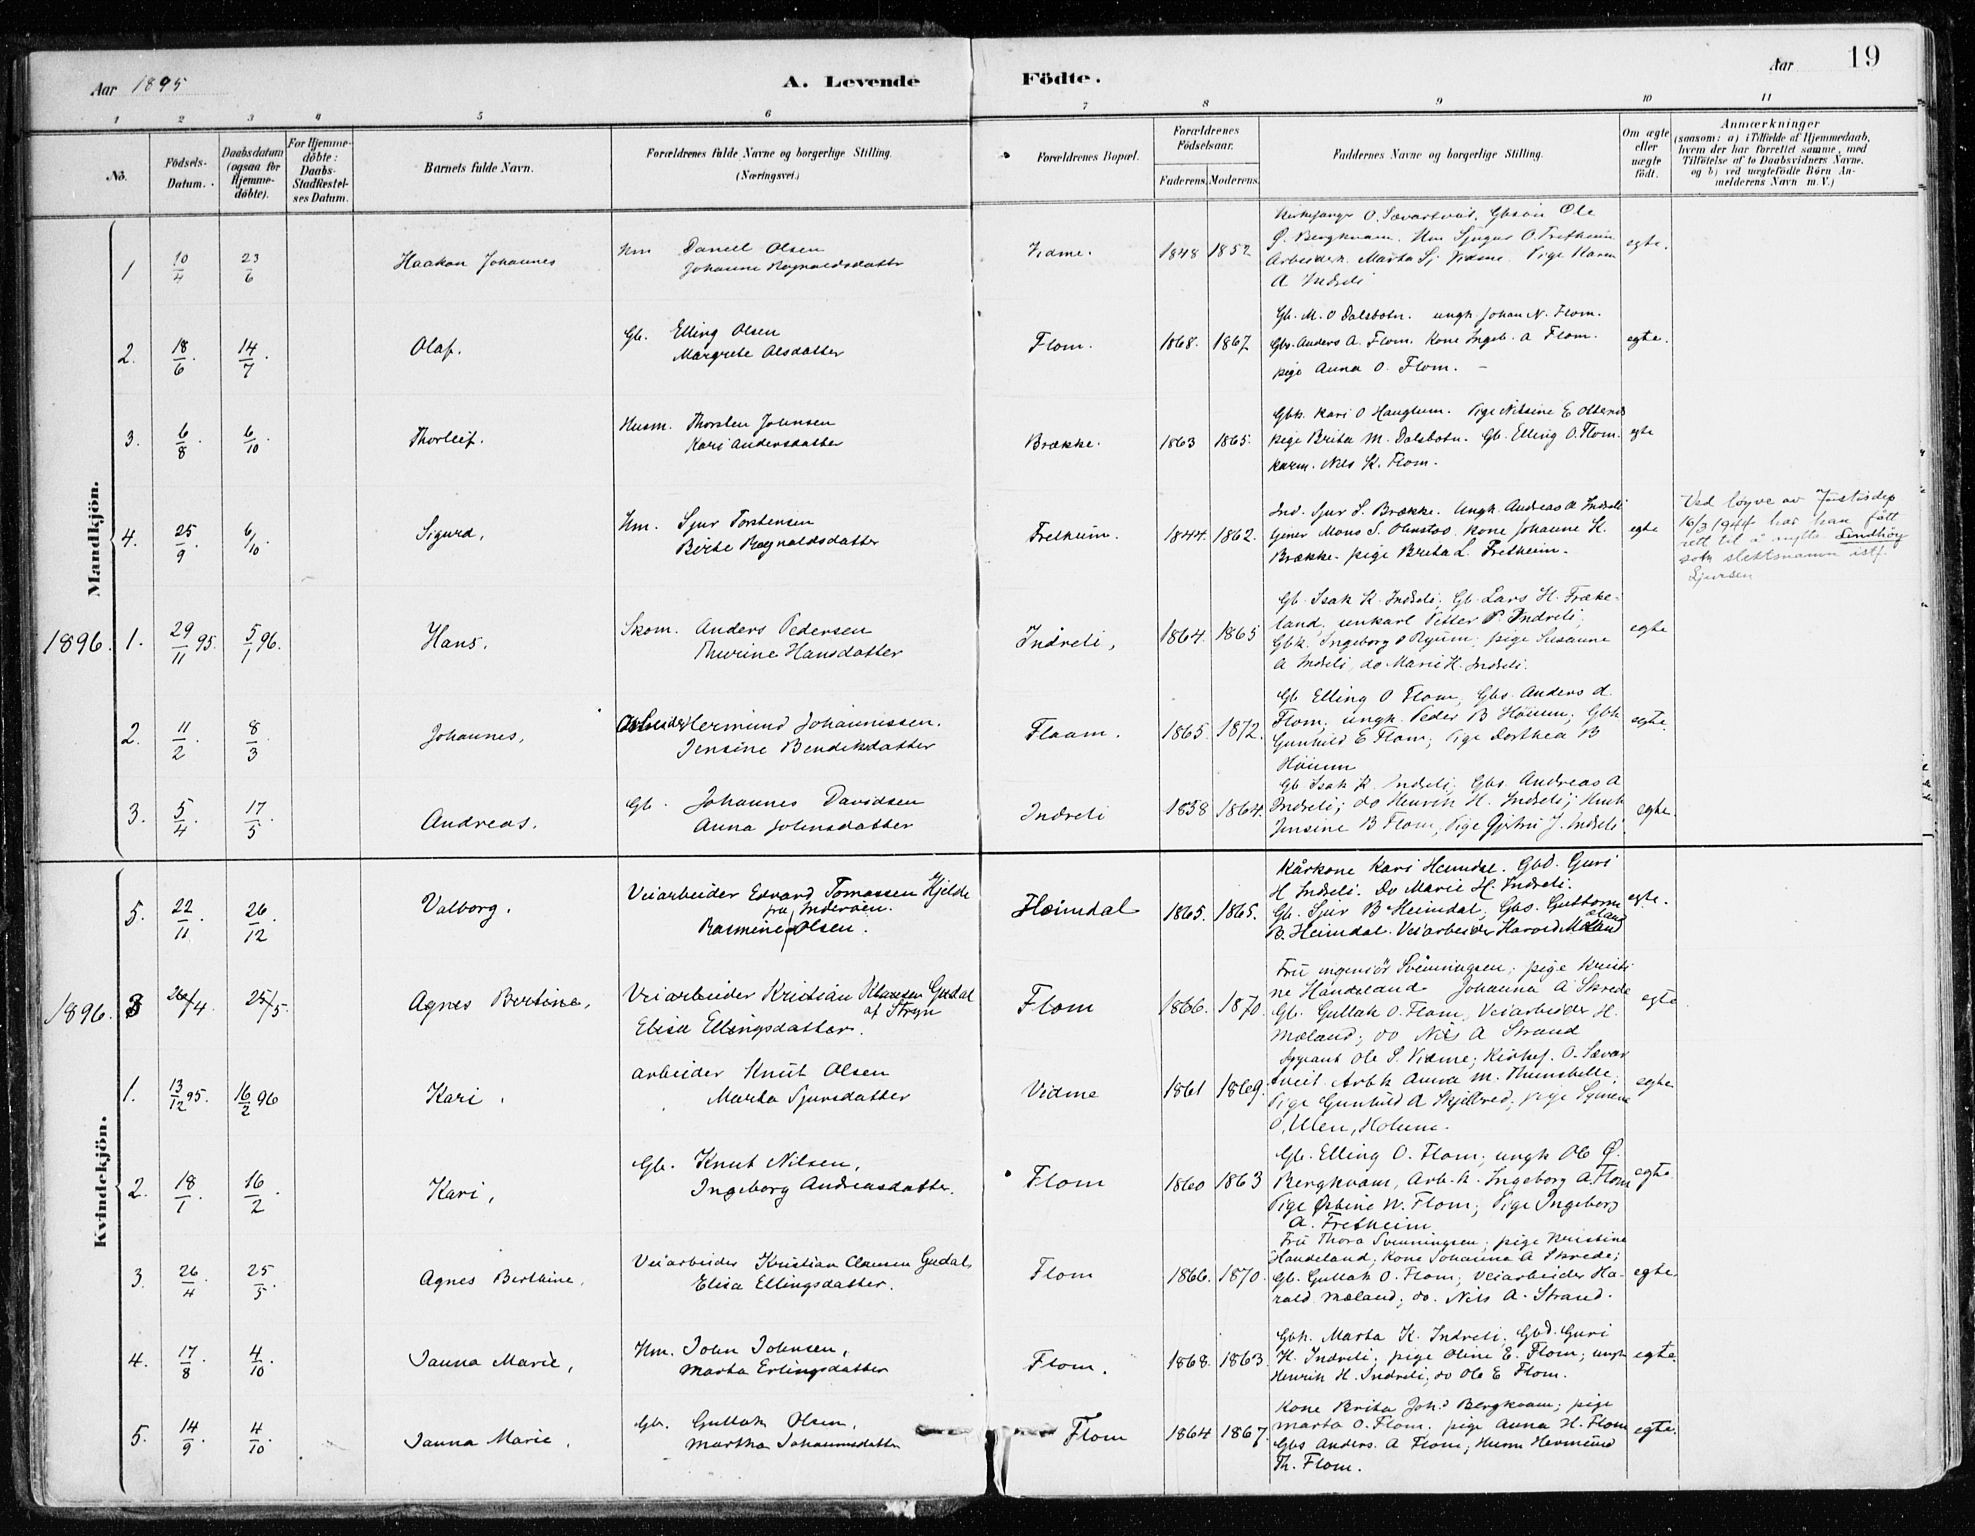 Aar 1895
A. Levende
Födte.
Aar
19
1 2 3 4 5 6 7 8 9 10 11
No.
Födsels-
Datum.
Daabsdatum
(ogsaa for
Hjemme-
döbte).
For Hjemme-
döbte:
Daabs-
Stadfæstel-
ses Datum.
Barnets fulde Navn.
Forældrenes fulde Navne og borgerlige Stilling.
(Næringsvei.)
Forældrenes Bopæl.
Forældrenes
Födselsaar.
Faderens. Moderens.
Faddernes Navne og borgerlige Stilling.
Om ægte
eller
uægte
födt.
Anmærkninger
(saasom: a) i Tilfælde af Hjemmedaab,
hvem der har forrettet samme, med
Tilföielse af to Daabsvidners Navne.
og b) ved uægtefödte Börn An-
melderens Navn m. V.)
Mandkjön.
1 10/4 23/6 Haakon Johannes
Hm Daniel Olsen
Johanna Ragnaldsdatter
Vidme. 1848 1852
Kirkesanger O. Sævartveit. Gbsön Ole
Ø. Bergkvam. Hm Sjugur O. Fretheim
Arbeiderk. Marta Sj Vidme. Pige Karen
A Indreli
egte.
2. 18/6. 14/7. Olaf.
Gb. Elling Olsen
Margrete Olsdatter
Flom. 1868. 1867
Gb. M. O Dalsbotn. ungk Johan N. Flom.
Gbs. Anders A. Flom. Kone Ingeb. A Flom.
pige Anna O. Flom. –
egte.
3. 6/8. 6/10. Thorleif.
Husm. Thorsten Johnsen
Kari Andersdatter
Brække. 1863 1865.
Gbk. Kari O Haugum. Pige Nilsine E Otternes
pige Brita M. Dalsbotn. Gb. Elling O. Flom.
karm. Nils K. Flom.
egte
4. 25/9. 6/10 Sigurd,
Hm. Sjur Torstensen
Birte Ragnaldsdatter
Fretheim. 1844. 1862.
Ind. Sjur S. Brække. Ungk. Andreas A Indreli
tjener Mons S. Olnstos. kone Johanne K.
Brække. pige Brita L. Fretheim.
egte
Ved løyve av Justisdep
16/3 1944 har han fått
rett til å nytte Lindhög
som slektsnamn istf.
Sjursen
1896. 1. 29/11 95. 5/1 96. Hans.
Skom. Anders Pedersen
Thurine Hansdatter
Indreli, 1864. 1865
Gb. Isak K. Indreli; Gb Lars H. Fræke-
land, unkarl Petter P. Indreli;
Gbk. Ingeborg O Ryum; pige Susanne
A Indreli, do Marie H. Indreli.
egte
2. 11/2 8/3 Johannes,
Arbeider Hermund Johannessen.
Jensine Bendiksdatter
Flaam. 1865. 1872.
Gb. Elling O Flom, Gbs. Anders A.
Flom, ungk. Peder B Höium; Gbk
Gunhild E Flom; Pige Dorthea B
Höium
egte.
3. 5/4. 17/5. Andreas.
Gb. Johannes Davidsen
Anna Johnsdatter
Indreli 1858 1864.
Gb Isak K. Indreli, Gbs. Andreas A
Indreli; do Henrik H. Indreli; Hmk
Jensine B Flom, Pige Gjertru J. Indreli
egte.
Kvindekjön.
5. 22/11. 26/12 Valborg.
Veiarbeider Edvard Tomassen Hjelde
fra Inderøen.
Rasmine Olsen.
Heimdal 1865. 1865.
Kårkone Kari Heimdal. Gbd. Guri
H Indreli. Do Marie H. Indreli.
Gb. Sjur B Heimdal, Gbs. Guttorm
B. Heimdal. Veiarbeider Harald Mæland
egte.
1896. 3 26/4 25/5. Agnes Bertine,
Veiarbeider Kristian Klausen Gudal
af Stryn
Elisa Ellingsdatter.
Flom 1866. 1870.
Fru ingeniör Svenningsen; pige Kristi-
ne Handeland Johanna A Skrede
Gb. Gullak O. Flom, Veiarbeider H.
Mæland; do Nils A Strand
egte
1. 13/12 95. 16/2 96 Kari,
arbeider Knut Olsen
Marta Sjursdatter
Vidme 1861 1869.
Aspirant Ole S. Vidme; Kirkes. O. Sævar
tveit. Arbk Anna M. Thunshelle,
Pige Gunhild A Skjelbred; pige Synneva
O, Ulen, Holum.
egte
2. 18/1. 16/2. Kari,
Gb. Knut Nilsen,
Ingeborg Andreasdatter.
Flom 1860 1863
Gb. Elling O. Flom; ungk Ole Ø.
Bergkvam, Arb.k. Ingeborg A. Flom
Pige Østine N. Flom; Pige Ingeborg
A. Fretheim
egte.
3. 26/4. 25/5. Agnes Berthine,
Veiarbeider Kristian Clausen Gudal,
Elisa Ellingsdatter.
Flom 1866. 1870.
Fru Thora Svenningsen; pige Kristine
Handeland; Kone Johanna A Skrede;
Gb. Gullak O. Flom, Veiarbeider Ha-
rald Mæland, do. Nils A. Strand.
egte.
4. 17/8. 4/10. Janna Marie,
Hm. John Johnsen,
Marta Erlingsdatter
Flom. 1868. 1863.
Gbk. Marta K. Indreli. Gbd. Guri
H. Indreli, pige Oline E. Flom; ungk
Henrik H. Indreli, do Ole E Flom.
egte.
5. 14/9. 4/10. Janna Marie,
Gb. Gullak Olsen,
Martha Johannesdatter
Flom 1864 1867.
Kone Brita Joh.s Bergkvam; pige
Marta O. Flom, pige Anna H. Flom
Gbs Anders A Flom, Husm Hermund
Th. Flom.
egte.